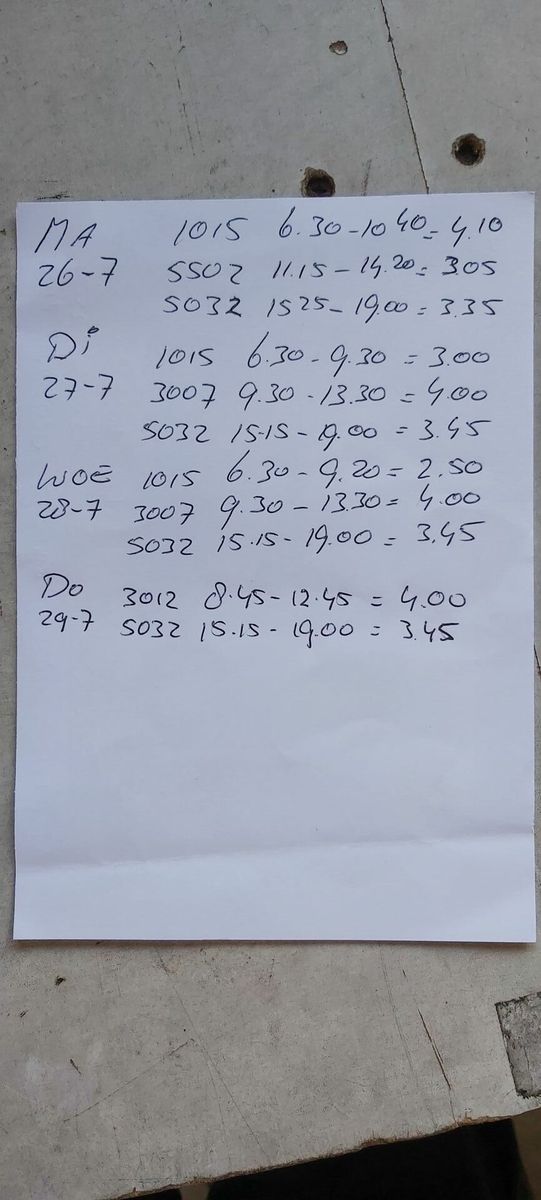 MA 1015 6.30-10 40= 4.10
26-7 5502 11.15-14.20= 305
5032 15 25-19.00= 3.35
Di 1015 6.30-9.30 = 3.00
27-7 3007 9.30-13.30 = 4.00
5032 15.15-19.00 = 3.45
WOE 1015 6.30-9.20= 2.50
28-7 3007 9.30-13.30= 4.00
5032 15.15-19.00= 3.45
Do 3012 8.45-12.45 = 4.00
29-7 5032 15.15-19.00 = 3.45